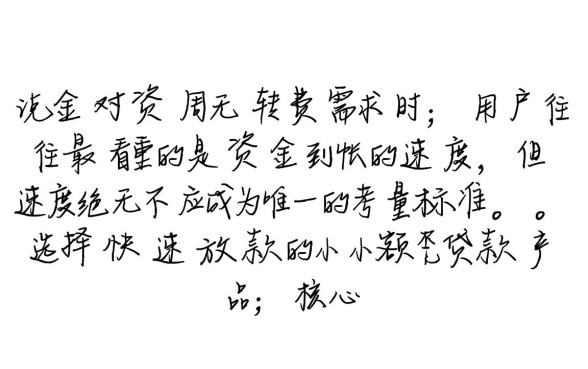 金对资周无转费需求时；用户往
往最看重的是资金到帐的速度，但
速度绝无不应成为唯一的考量标准。。
选择快速放款的小小额贷款产
品；核心